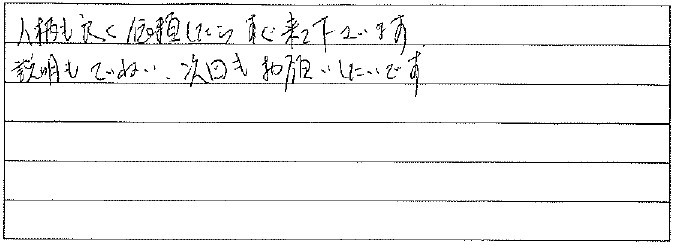 人柄も良く依頼したらすぐ来て下さいます
説明もていねい、次回もお願いしたいです